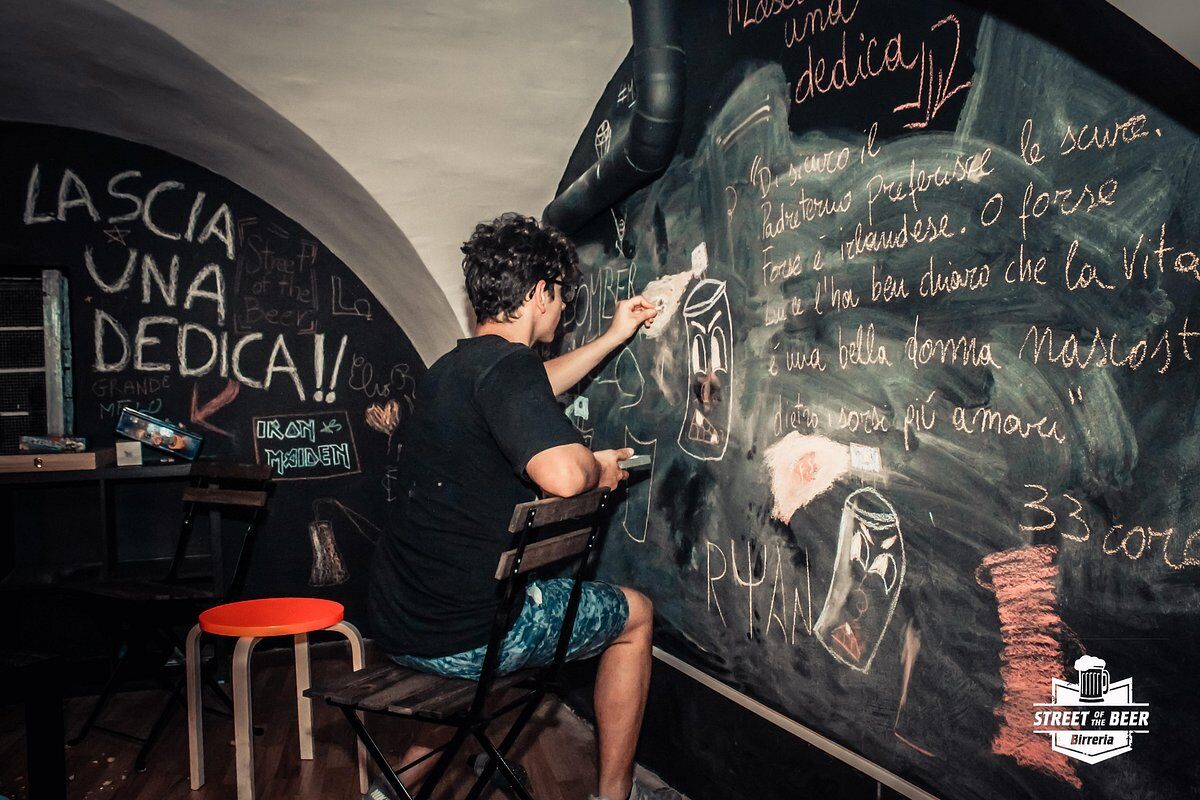 LASCIA
UNA
DEDICA!!
Street
of the
Beer
La
GRANDE
IRON
MAIDEN
Lascia
una
dedica
"Di sicuro il
Padreterno preferisce le scure.
Forse è irlandese. O forse
l'ha ben chiaro che la Vita
è una bella donna nascost
dietro i sorsi più amari"
33
RYAN
STREET OF THE BEER
Birreria